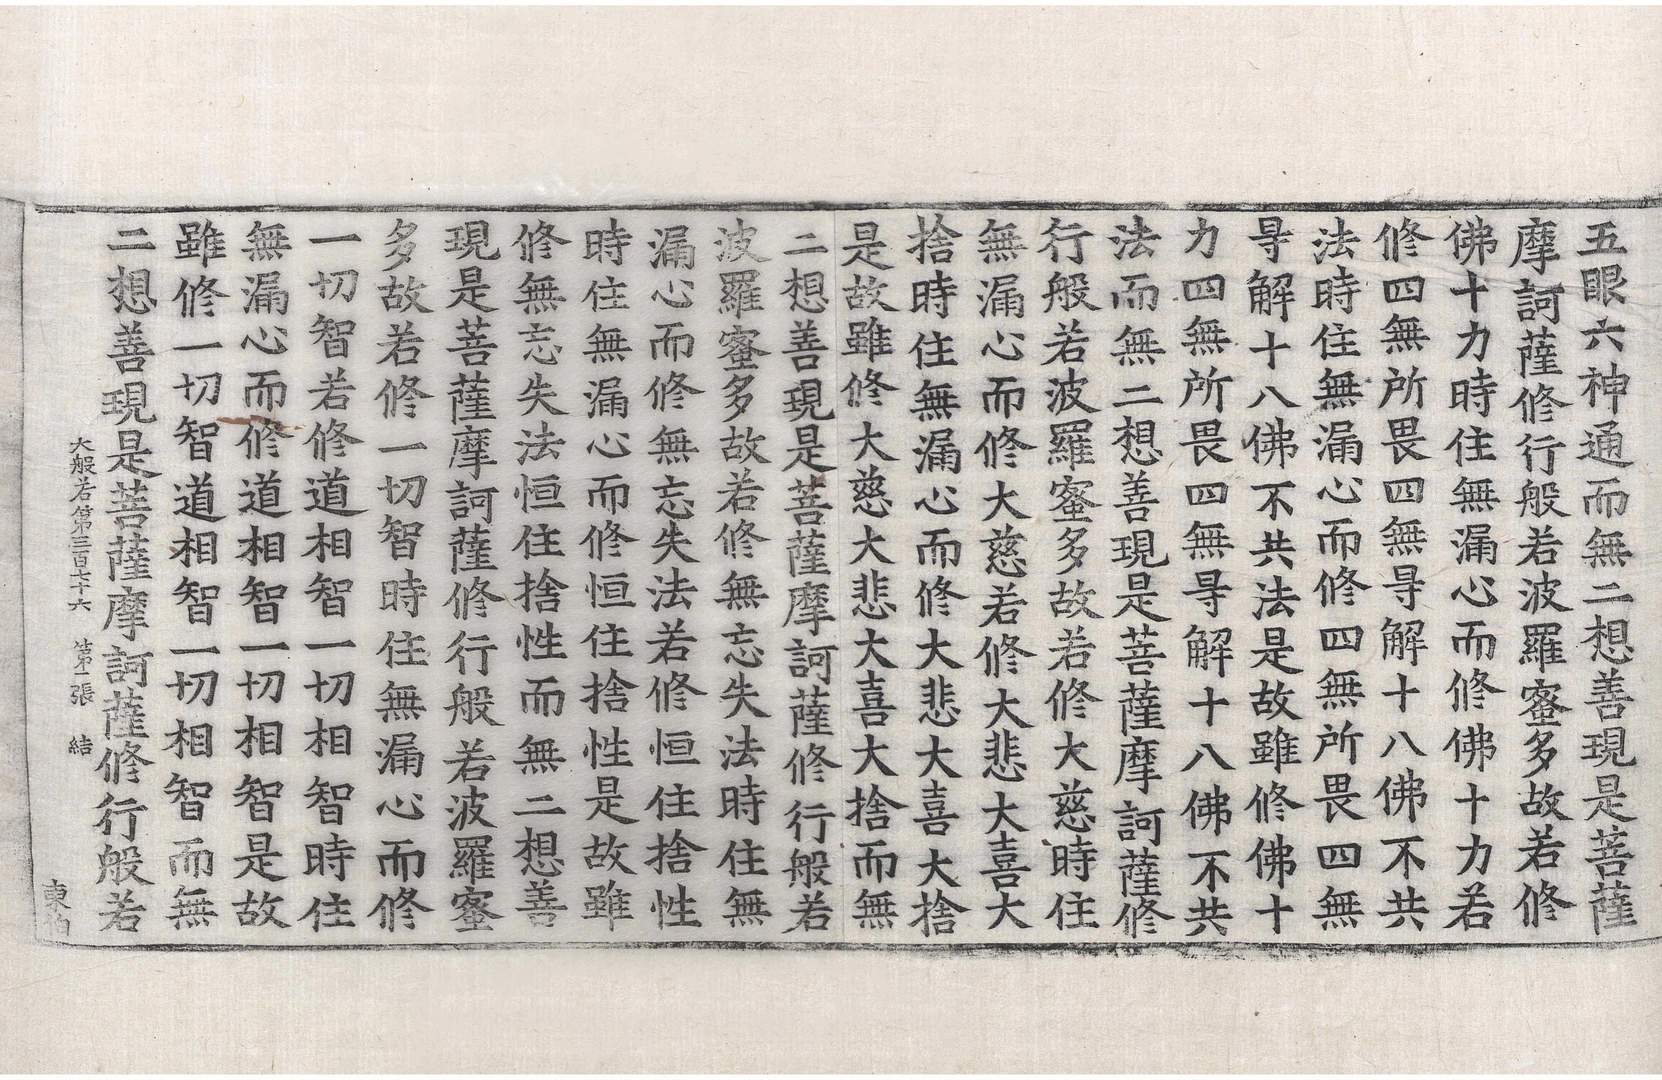 五眼六神通而無二想善現是菩薩
摩訶薩修行般若波羅蜜多故若修
佛十力時住無漏心而修佛十力若
修四無所畏四無㝵解十八佛不共
法時住無漏心而修四無所畏四無
㝵解十八佛不共法是故雖修佛十
力四無所畏四無㝵解十八佛不共
法而無二想善現是菩薩摩訶薩修
行般若波羅蜜多故若修大慈時住
無漏心而修大慈若修大悲大喜大
捨時住無漏心而修大悲大喜大捨
是故雖修大慈大悲大喜大捨而無
二想善現是菩薩摩訶薩修行般若
波羅蜜多故若修無忘失法時住無
漏心而修無忘失法若修恒住捨性
時住無漏心而修恒住捨性是故雖
修無忘失法恒住捨性而無二想善
現是菩薩摩訶薩修行般若波羅蜜
多故若修一切智時住無漏心而修
一切智若修道相智一切相智時住
無漏心而修道相智一切相智是故
雖修一切智道相智一切相智而無
二想善現是菩薩摩訶薩修行般若
大般若第三百七十六 第二張 結
東伯